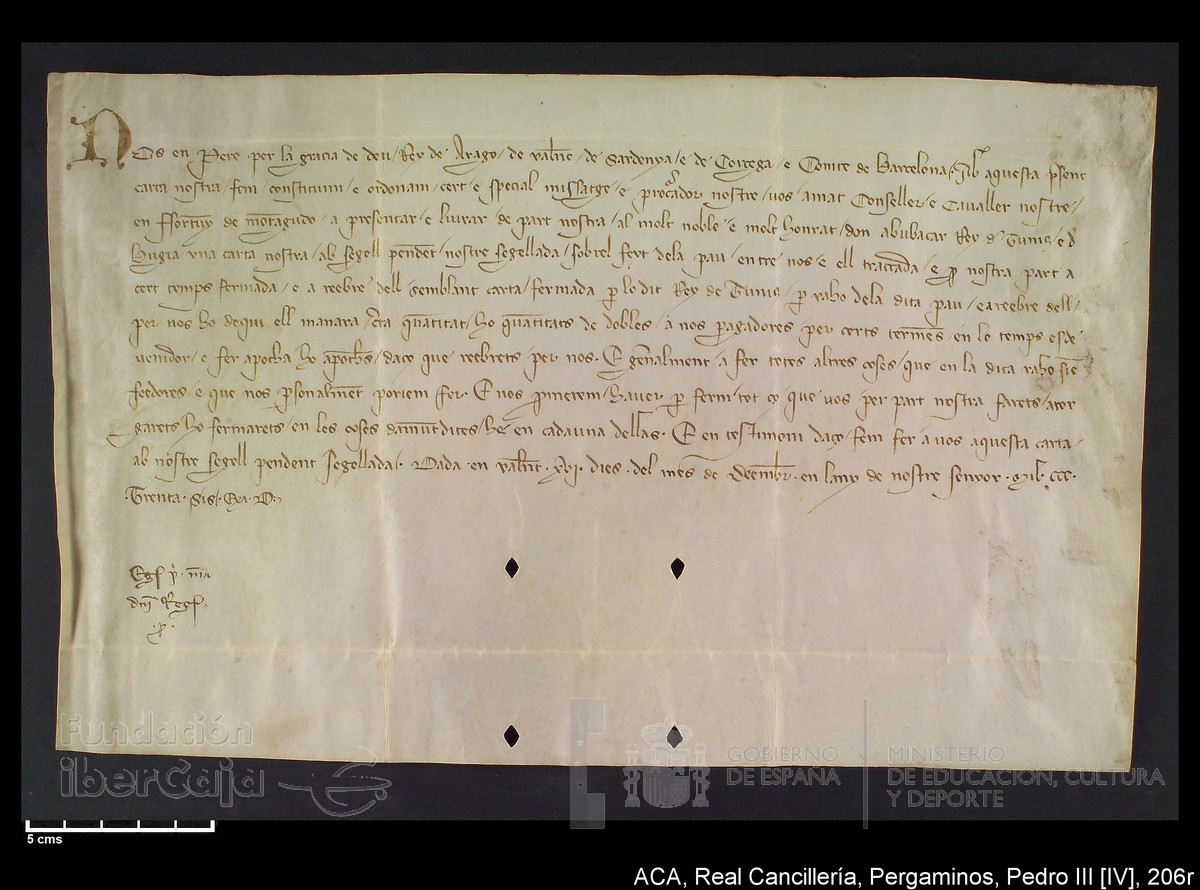 Nos en Pere per la gracia de deu / Rey de Arago / de valenc / de Sardenya / e de Corçega / e Comte de Barcelona / Ab aquesta psent
carta nostra / fem constituim / e ordonam / cert e special missatge / e procurador nostre / vos / amat Conseller / e Cavaller nostre /
en ffortuny de montagudo / a presentar / e liurar de part nostra / al molt noble / e molt honrat / don abubacar Rey d Tunis / e d
Bugia vna carta nostra / ab segell pendet / nostre segellada / sobrel feyt dela pau / entre nos / e ell tractada / e p nostra part a
cert temps fermada / e a reebre dell semblant carta / fermada p lo dit Rey de Tunis / p raho dela dita pau / e a reebre dell /
per nos ho de qui ell manara / certa quantitat / ho quantitats de dobles / a nos pagadores / per certs termens / en lo temps esde
venidor / e fer apocha ho apoches / daço que reebrets per nos. E generalment / a fer totes altres coses / que en la dita raho sien
feedores / e que nos psonalmet poriem fer. E nos prometem / hauer p ferm / tot ço que vos per part nostra farets / ator
garets ho fermarets / en les coses damunt dites / he en cadauna dellas. E en testimoni daço / fem fer a vos aquesta carta /
ab nostre segell pendent segellada. Dada en valenc. xvi. dies. del mes de Deembr. en lany de nostre senyor. Mil. ccc.
Trenta. sis.
dni Regis.
Fundación
iberCaja
GOBIERNO
DE ESPAÑA
MINISTERIO
DE EDUCACIÓN, CULTURA
Y DEPORTE
5 cms
ACA, Real Cancillería, Pergaminos, Pedro III [IV], 206r